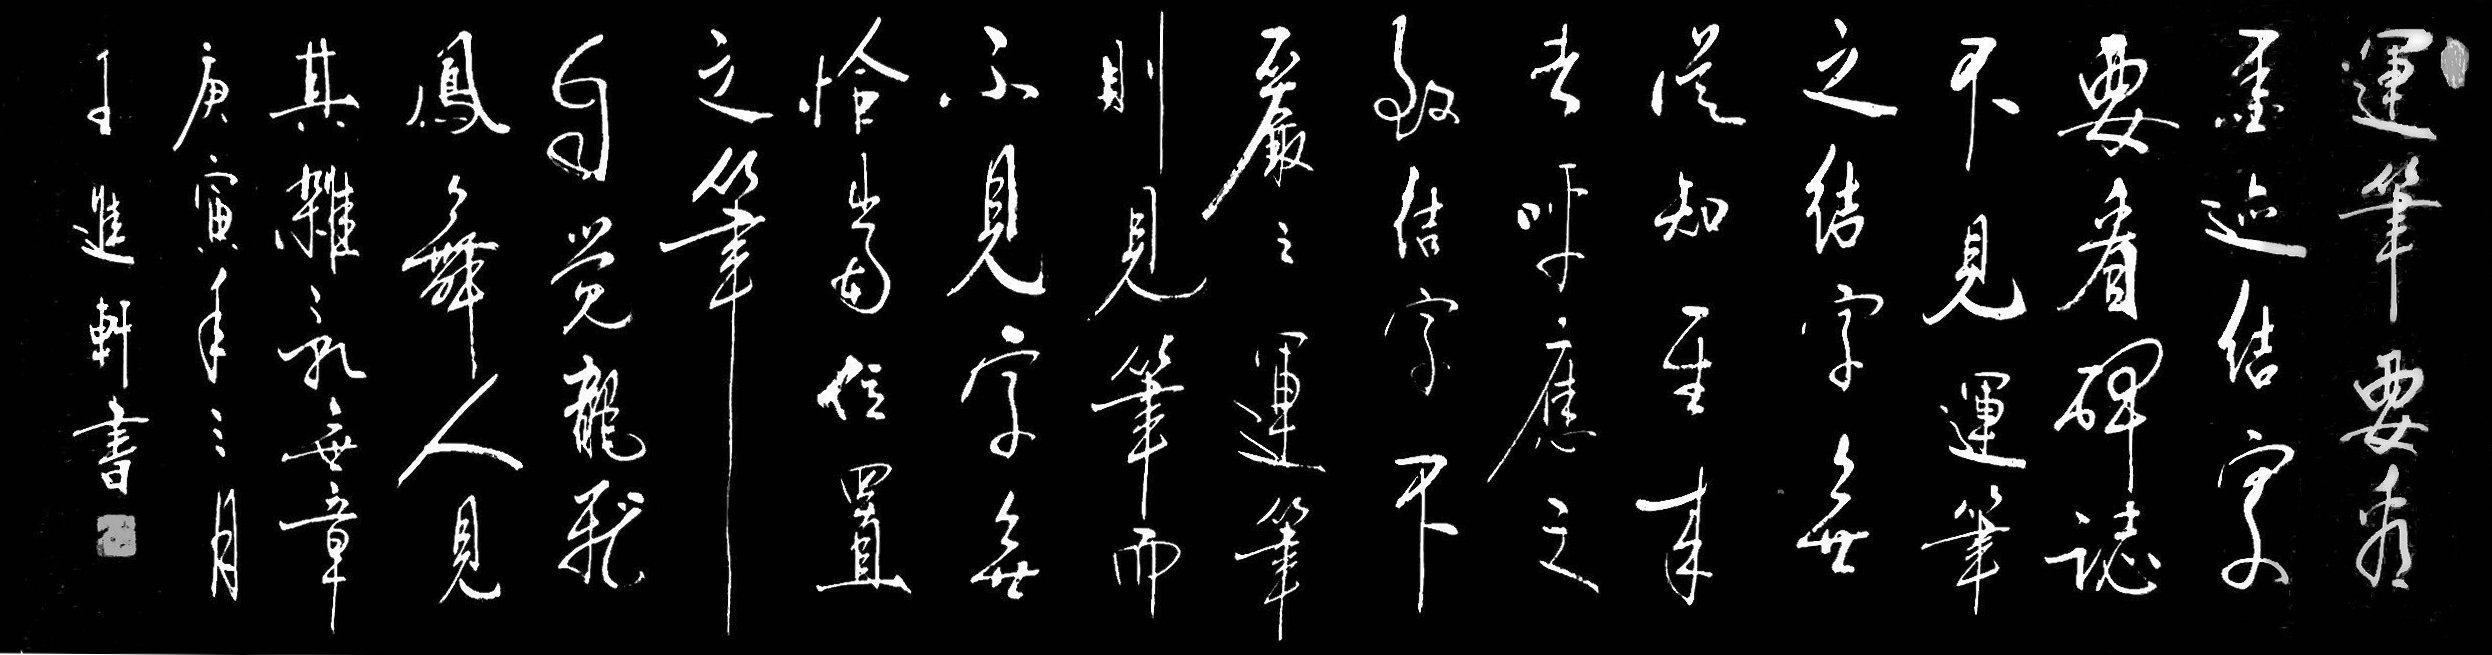 運筆要看
墨迹結字
要看碑誌
不見運筆
之結字無
從知其来
去呼應之
致結字不
嚴之運筆
則見筆而
不見字無
恰當位置
之筆
自覺龍飛
鳳舞人見
其雜亂無章
庚寅年三月
王進軒書